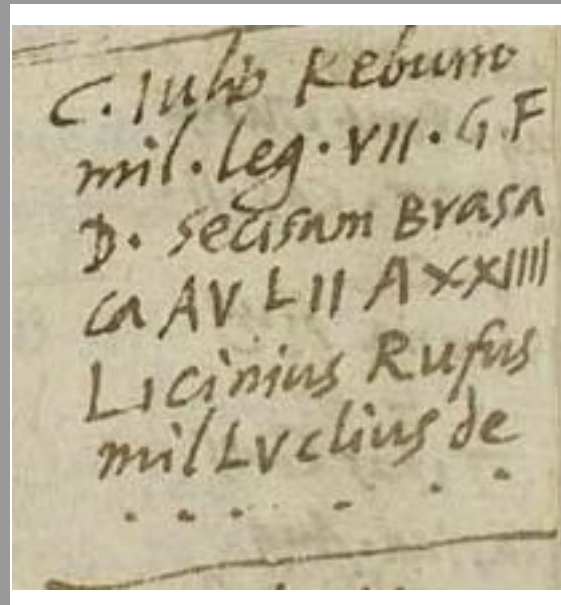 C. Iulio Reburro
mil. leg. VII. G. F
D. Secisam Brasa
ca AV LII A XXIIII
Licinius Rufus
mil LVclius de
. . . . . .